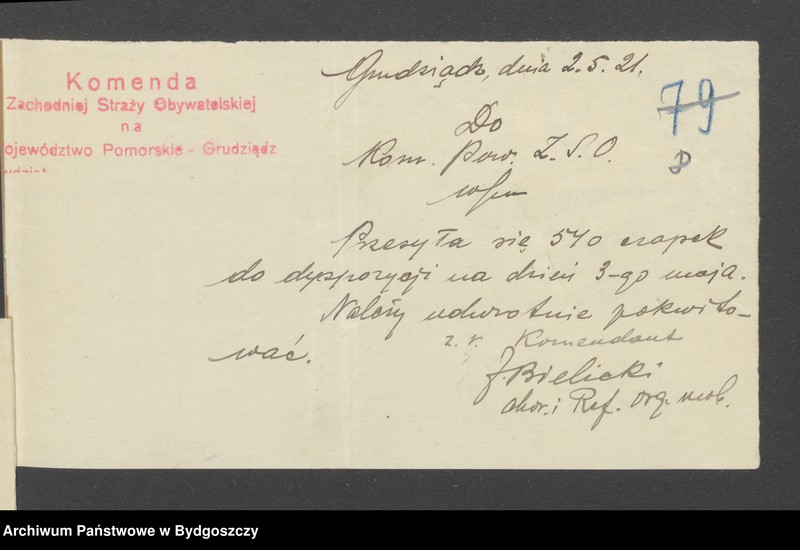 Komenda
Zachodniej Straży Obywatelskiej
na
ojewództwo Pomorskie - Grudziądz
Grudziądz, dnia 2.5.21.
79
8
Do
Kom. Pow. Z.S.O.
Przesyła się 540 czapek
do dyspozycji na dzień 3-go maja.
Należy odwrotnie pokwito-
wać.
z. r. Komendant
J. Bielicki
chor. i Ref. org. mob.
Archiwum Państwowe w Bydgoszczy